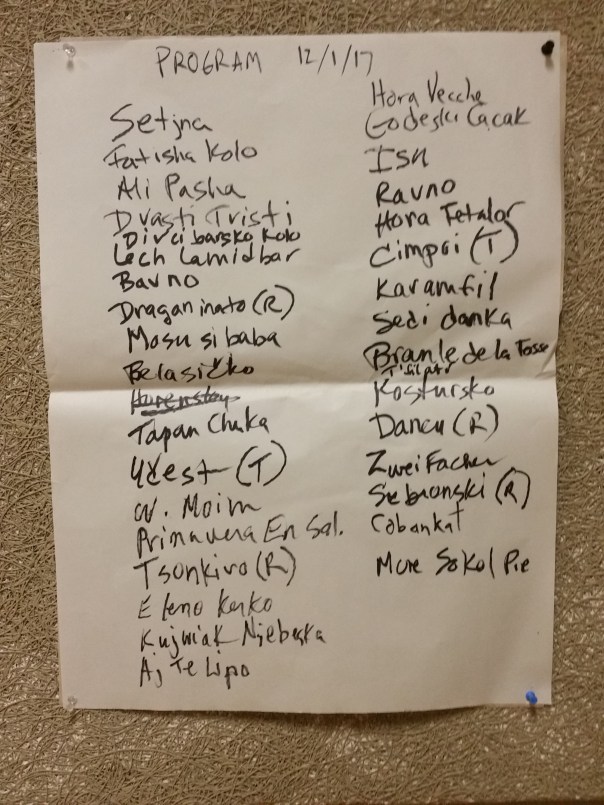 PROGRAM 12/1/17
Setjna
Fatisha Kolo
Ali Pasha
Dvasti Tristi
Divcibarsko Kolo
Lech Lamidbar
Bavno
Draganinato (R)
Mosu si baba
Belasičko
Tapan Chuka
Učest (T)
W. Moim
Primavera En Sal.
Tsonkivo (R)
Eleno Kerko
Kujwiak Niebeska
Aj Te Lipo
Hora Vecche
Godeski Cacak
Isn
Ravno
Hora Fetalor
Cimpoi (T)
Karamfil
Sedi danka
Branle de la Fosse
Kostursko
Dancu (R)
Zwei Facher
Cobankat
More Sokol Pie